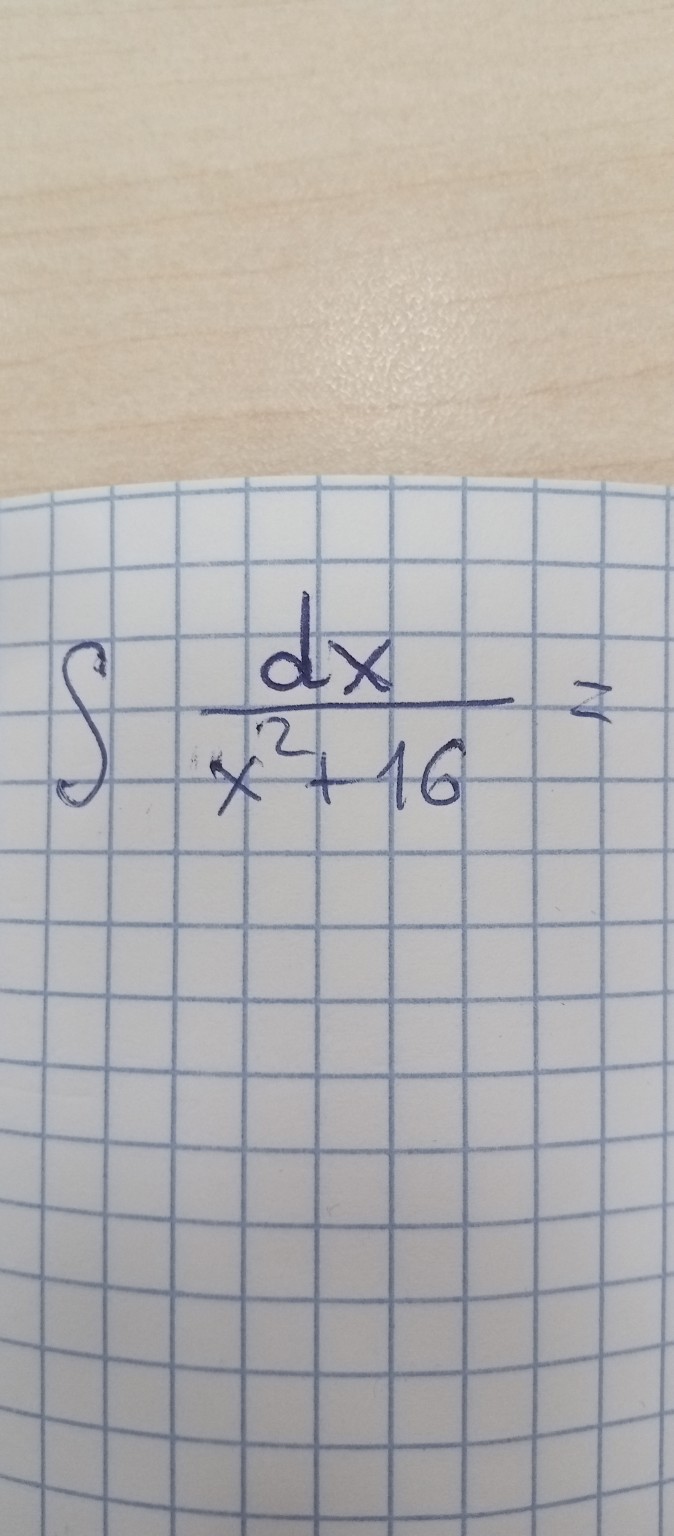 ∫ dx / x² + 16 =